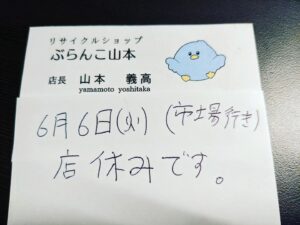 リサイクルショップ
ぶらんこ山本
店長 山本 義高
yamamoto yoshitaka
6月6日(火) (市場行き)
店休みです。